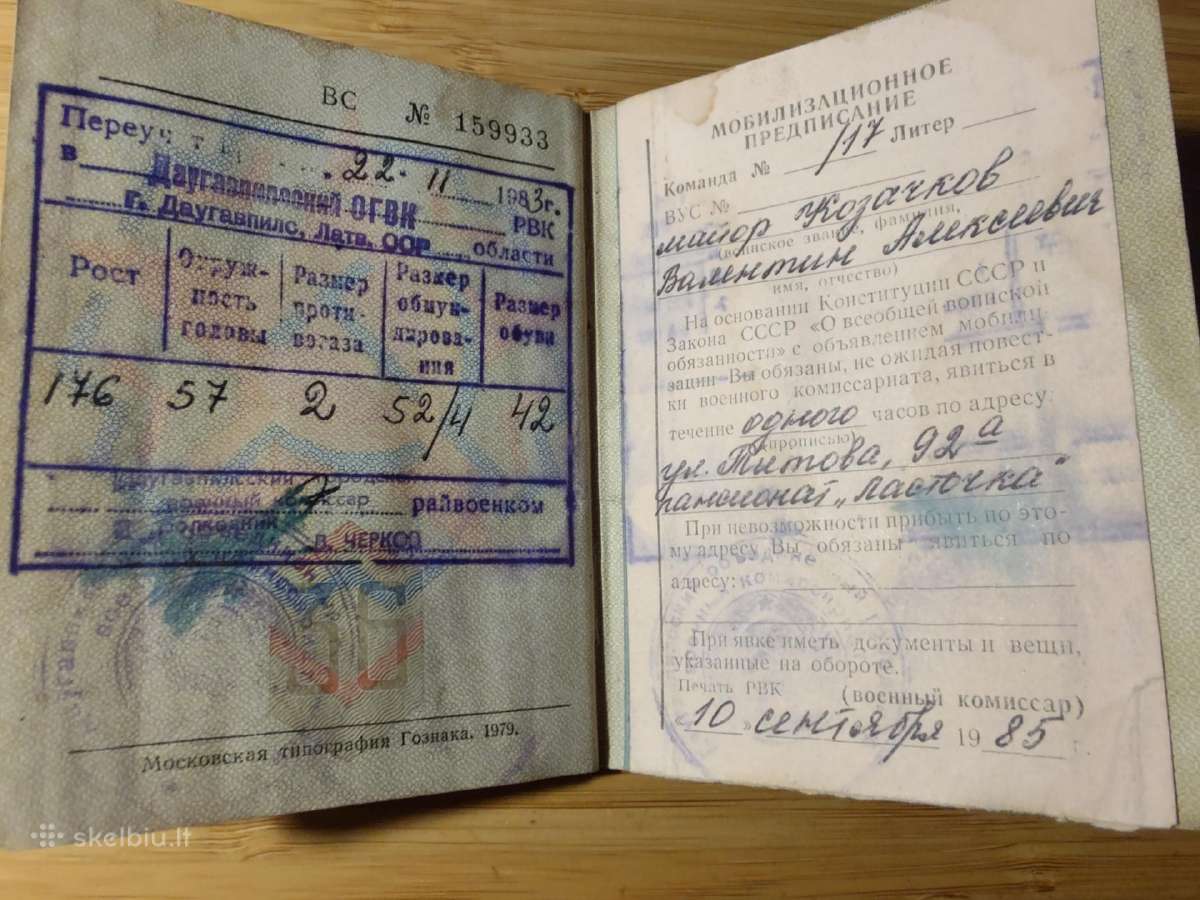 ВС № 159933
Переуч т 22. 11 1983г.
в Даугавпилсский ОГВК РВК
г. Даугавпилс, Латв. ССР области
Рост
Окруж-
ность
головы
Размер
проти-
вогаза
Размер
обмун-
дирова-
ния
Размер
обуви
176 57 2 52/4 42
военный комиссар райвоенком
В. ЧЕРКОВ
Московская типография Гознака. 1979.
МОБИЛИЗАЦИОННОЕ
ПРЕДПИСАНИЕ
Команда № /117 Литер
ВУС №
майор Козачков
(воинское звание, фамилия,
Валентин Алексеевич
имя, отчество)
На основании Конституции СССР и
Закона СССР «О всеобщей воинской
обязанности» с объявлением мобили-
зации Вы обязаны, не ожидая повест-
ки военного комиссариата, явиться в
течение одного часов по адресу:
(прописью)
ул. Титова, 92а
пансионат „Ласточка"
При невозможности прибыть по это-
му адресу Вы обязаны явиться по
адресу:
При явке иметь документы и вещи,
указанные на обороте.
Печать РВК (военный комиссар)
«10» сентября 1985 г.
skelbiu.lt